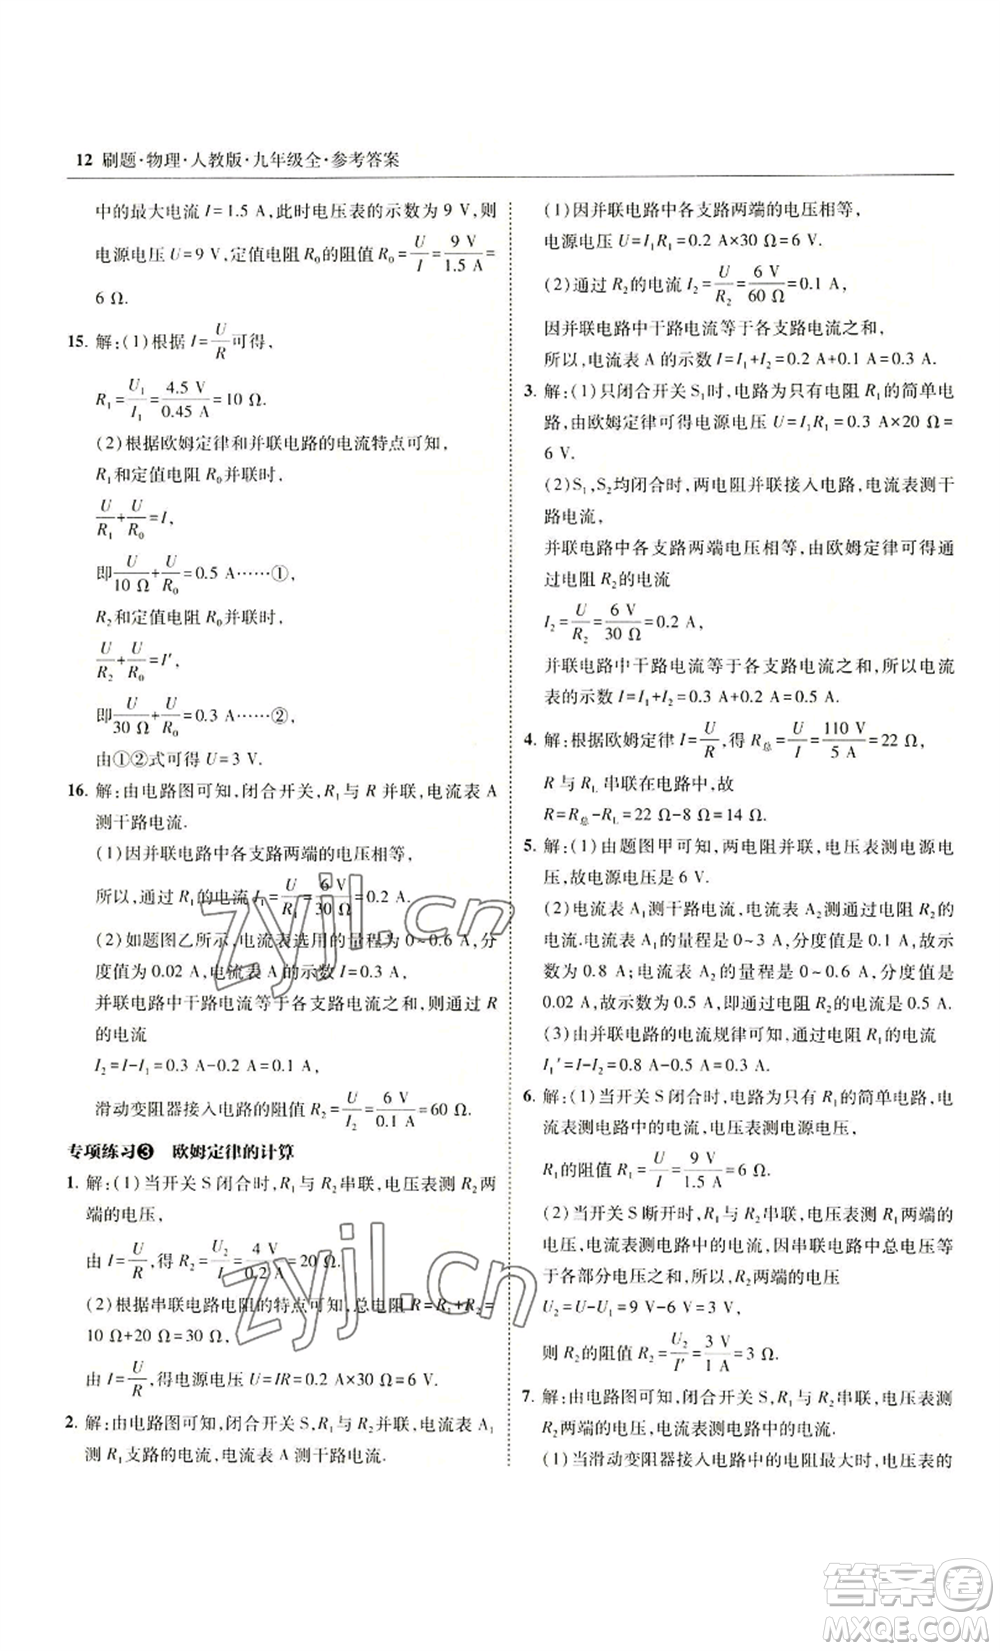 12 刷题·物理·人教版·九年级全·参考答案
中的最大电流 I=1.5 A,此时电压表的示数为 9 V,则
电源电压 U=9 V,定值电阻 R₀的阻值 R₀=U/I=9 V/1.5 A=
6 Ω.
15. 解:(1)根据 I=U/R可得,
R₁=U₁/I₁=4.5 V/0.45 A=10 Ω.
(2)根据欧姆定律和并联电路的电流特点可知,
R₁和定值电阻 R₀并联时,
U/R₁+U/R₀=I,
即U/10 Ω+U/R₀=0.5 A……①,
R₂和定值电阻 R₀并联时,
U/R₂+U/R₀=I′,
即U/30 Ω+U/R₀=0.3 A……②,
由①②式可得 U=3 V.
16. 解:由电路图可知,闭合开关,R₁与 R 并联,电流表 A
测干路电流.
(1)因并联电路中各支路两端的电压相等,
所以,通过 R₁的电流 I₁=U/R₁=6 V/30 Ω=0.2 A.
(2)如题图乙所示,电流表选用的量程为 0~0.6 A,分
度值为 0.02 A,电流表示数 I=0.3 A,
并联电路中干路电流等于各支路电流之和,通过 R
的电流
I₂=I-I₁=0.3 A-0.2 A=0.1 A,
滑动变阻器接入电路的阻值 R₂=U/I₂=6 V/0.1 A=60 Ω.
专项练习❸ 欧姆定律的计算
1. 解:(1)当开关 S 闭合时,R₁与 R₂串联,电压表测 R₂两
端的电压,
由 I=U/R,得 R₂=U₂/I=4 V/0.2 A=20 Ω.
(2)根据串联电路电阻的特点可知,总电阻 R=R₁+R₂=
10 Ω+20 Ω=30 Ω,
由 I=U/R,得电源电压 U=IR=0.2 A×30 Ω=6 V.
2. 解:由电路图可知,闭合开关 S,R₁与 R₂并联,电流表 A₁
测 R₁支路的电流,电流表 A 测干路电流.
(1)因并联电路中各支路两端的电压相等,
电源电压 U=I₁R₁=0.2 A×30 Ω=6 V.
(2)通过 R₂的电流 I₂=U/R₂=6 V/60 Ω=0.1 A,
因并联电路中干路电流等于各支路电流之和,
所以,电流表 A 的示数 I=I₁+I₂=0.2 A+0.1 A=0.3 A.
3. 解:(1)只闭合开关 S₁时,电路为只有电阻 R₁的简单电
路,由欧姆定律可得电源电压 U=I₁R₁=0.3 A×20 Ω=
6 V.
(2)S₁、S₂均闭合时,两电阻并联接入电路,电流表测干
路电流,
并联电路中各支路两端电压相等,由欧姆定律可得通
过电阻 R₂的电流
I₂=U/R₂=6 V/30 Ω=0.2 A,
并联电路中干路电流等于各支路电流之和,所以电流
表的示数 I=I₁+I₂=0.3 A+0.2 A=0.5 A.
4. 解:根据欧姆定律 I=U/R,得 R总=U/I=110 V/5 A=22 Ω,
R 与 R_L 串联在电路中,故
R=R总-R_L=22 Ω-8 Ω=14 Ω.
5. 解:(1)由题图甲可知,两电阻并联,电压表测电源电
压,故电源电压是 6 V.
(2)电流表 A₁测干路电流,电流表 A₂测通过电阻 R₂的
电流.电流表 A₁的量程是 0~3 A,分度值是 0.1 A,故示
数为 0.8 A;电流表 A₂的量程是 0~0.6 A,分度值是
0.02 A,故示数为 0.5 A,即通过电阻 R₂的电流是 0.5 A.
(3)由并联电路的电流规律可知,通过电阻 R₁的电流
I₁′=I-I₂=0.8 A-0.5 A=0.3 A.
6. 解:(1)当开关 S 闭合时,电路为 R₁的简单电路,电流
表测电路中的电流,电压表测电源电压,
R₁的阻值 R₁=U/I=9 V/1.5 A=6 Ω.
(2)当开关 S 断开时,R₁与 R₂串联,电压表测 R₁两端的
电压,电流表测电路中的电流,因串联电路中总电压等
于各部分电压之和,所以 R₂两端的电压
U₂=U-U₁=9 V-6 V=3 V,
则 R₂的阻值 R₂=U₂/I′=3 V/1 A=3 Ω.
7. 解:由电路图可知,闭合开关 S,R₁与 R₂串联,电压表测
R₂两端的电压,电流表测电路中的电流.
(1)当滑动变阻器接入电路中的电阻最大时,电压表的
zyjl.cn
zyjl.cn
答案圈
MXQE.COM